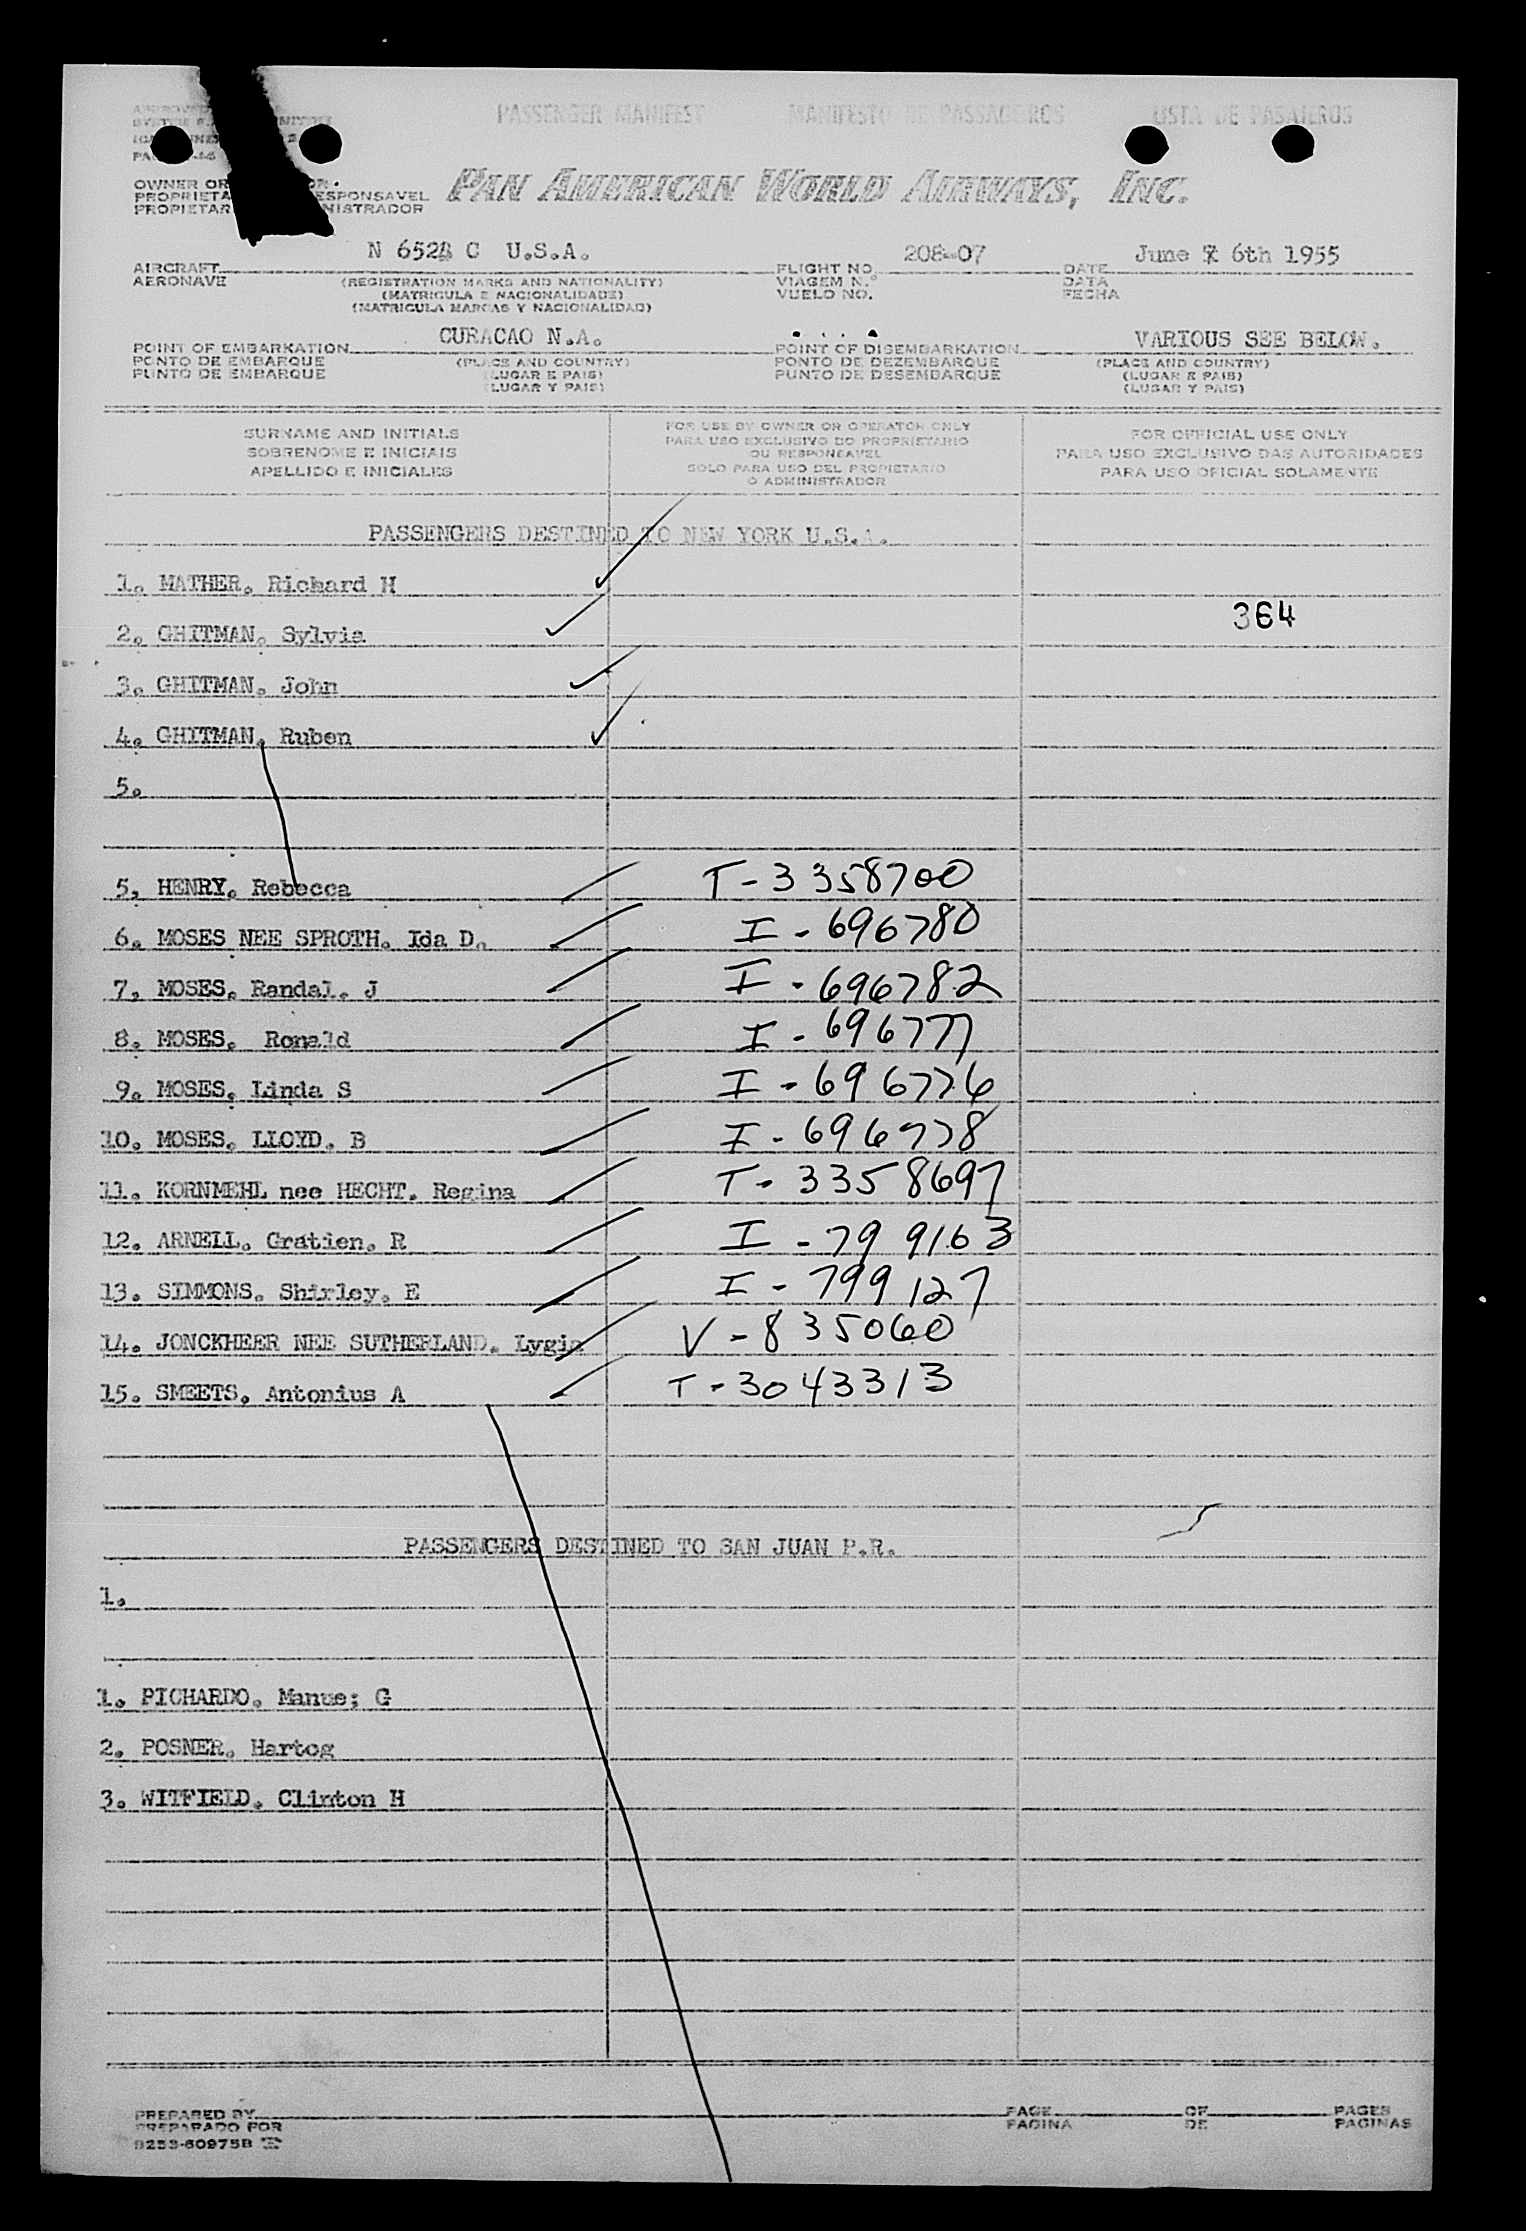 PASSENGER MANIFEST MANIFESTO DE PASSAGEIROS LISTA DE PASAJEROS
OWNER OR
PROPRIETA ESPONSAVEL
PROPIETAR NISTRADOR
PAN AMERICAN WORLD AIRWAYS, INC.
N 6528 C U.S.A. 208-07 June 7 6th 1955
AIRCRAFT FLIGHT NO. DATE
AERONAVE (REGISTRATION MARKS AND NATIONALITY) VIAGEM N.° DATA
(MATRICULA E NACIONALIDADE) VUELO NO. FECHA
(MATRICULA MARCAS Y NACIONALIDAD)
CURACAO N.A. VARIOUS SEE BELOW.
POINT OF EMBARKATION POINT OF DISEMBARKATION
PONTO DE EMBARQUE (PLACE AND COUNTRY) PONTO DE DEZEMBARQUE (PLACE AND COUNTRY)
PUNTO DE EMBARQUE (LUGAR E PAIS) PUNTO DE DESEMBARQUE (LUGAR E PAIS)
(LUGAR Y PAIS) (LUGAR Y PAIS)
SURNAME AND INITIALS
SOBRENOME E INICIAIS
APELLIDO E INICIALES
FOR USE BY OWNER OR OPERATOR ONLY
PARA USO EXCLUSIVO DO PROPRIETARIO
OU RESPONSAVEL
SOLO PARA USO DEL PROPIETARIO
O ADMINISTRADOR
FOR OFFICIAL USE ONLY
PARA USO EXCLUSIVO DAS AUTORIDADES
PARA USO OFICIAL SOLAMENTE
PASSENGERS DESTINED TO NEW YORK U.S.A.
1. MATHER. Richard H
364
2. GHITMAN. Sylvia
3. GHITMAN. John
4. GHITMAN. Ruben
5.
5, HENRY. Rebecca T-3358700
6. MOSES NEE SPROTH. Ida D. I-696780
7, MOSES. Randal. J I-696782
8. MOSES. Ronald I-696777
9. MOSES. Linda S I-696776
10. MOSES. LLOYD. B I-696778
11. KORNMEHL nee HECHT. Regina T-3358697
12. ARNELL. Gratien. R I-799163
13. SIMMONS. Shirley. E I-799127
14. JONCKHEER NEE SUTHERLAND. Lygia V-835060
15. SMEETS. Antonius A T-3043313
PASSENGERS DESTINED TO SAN JUAN P.R.
1.
1. PICHARDO. Manue; G
2. POSNER. Hartog
3. WITFIELD. Clinton H
PREPARED BY PAGE OF PAGES
PREPARADO POR PAGINA DE PAGINAS
8253-60975B